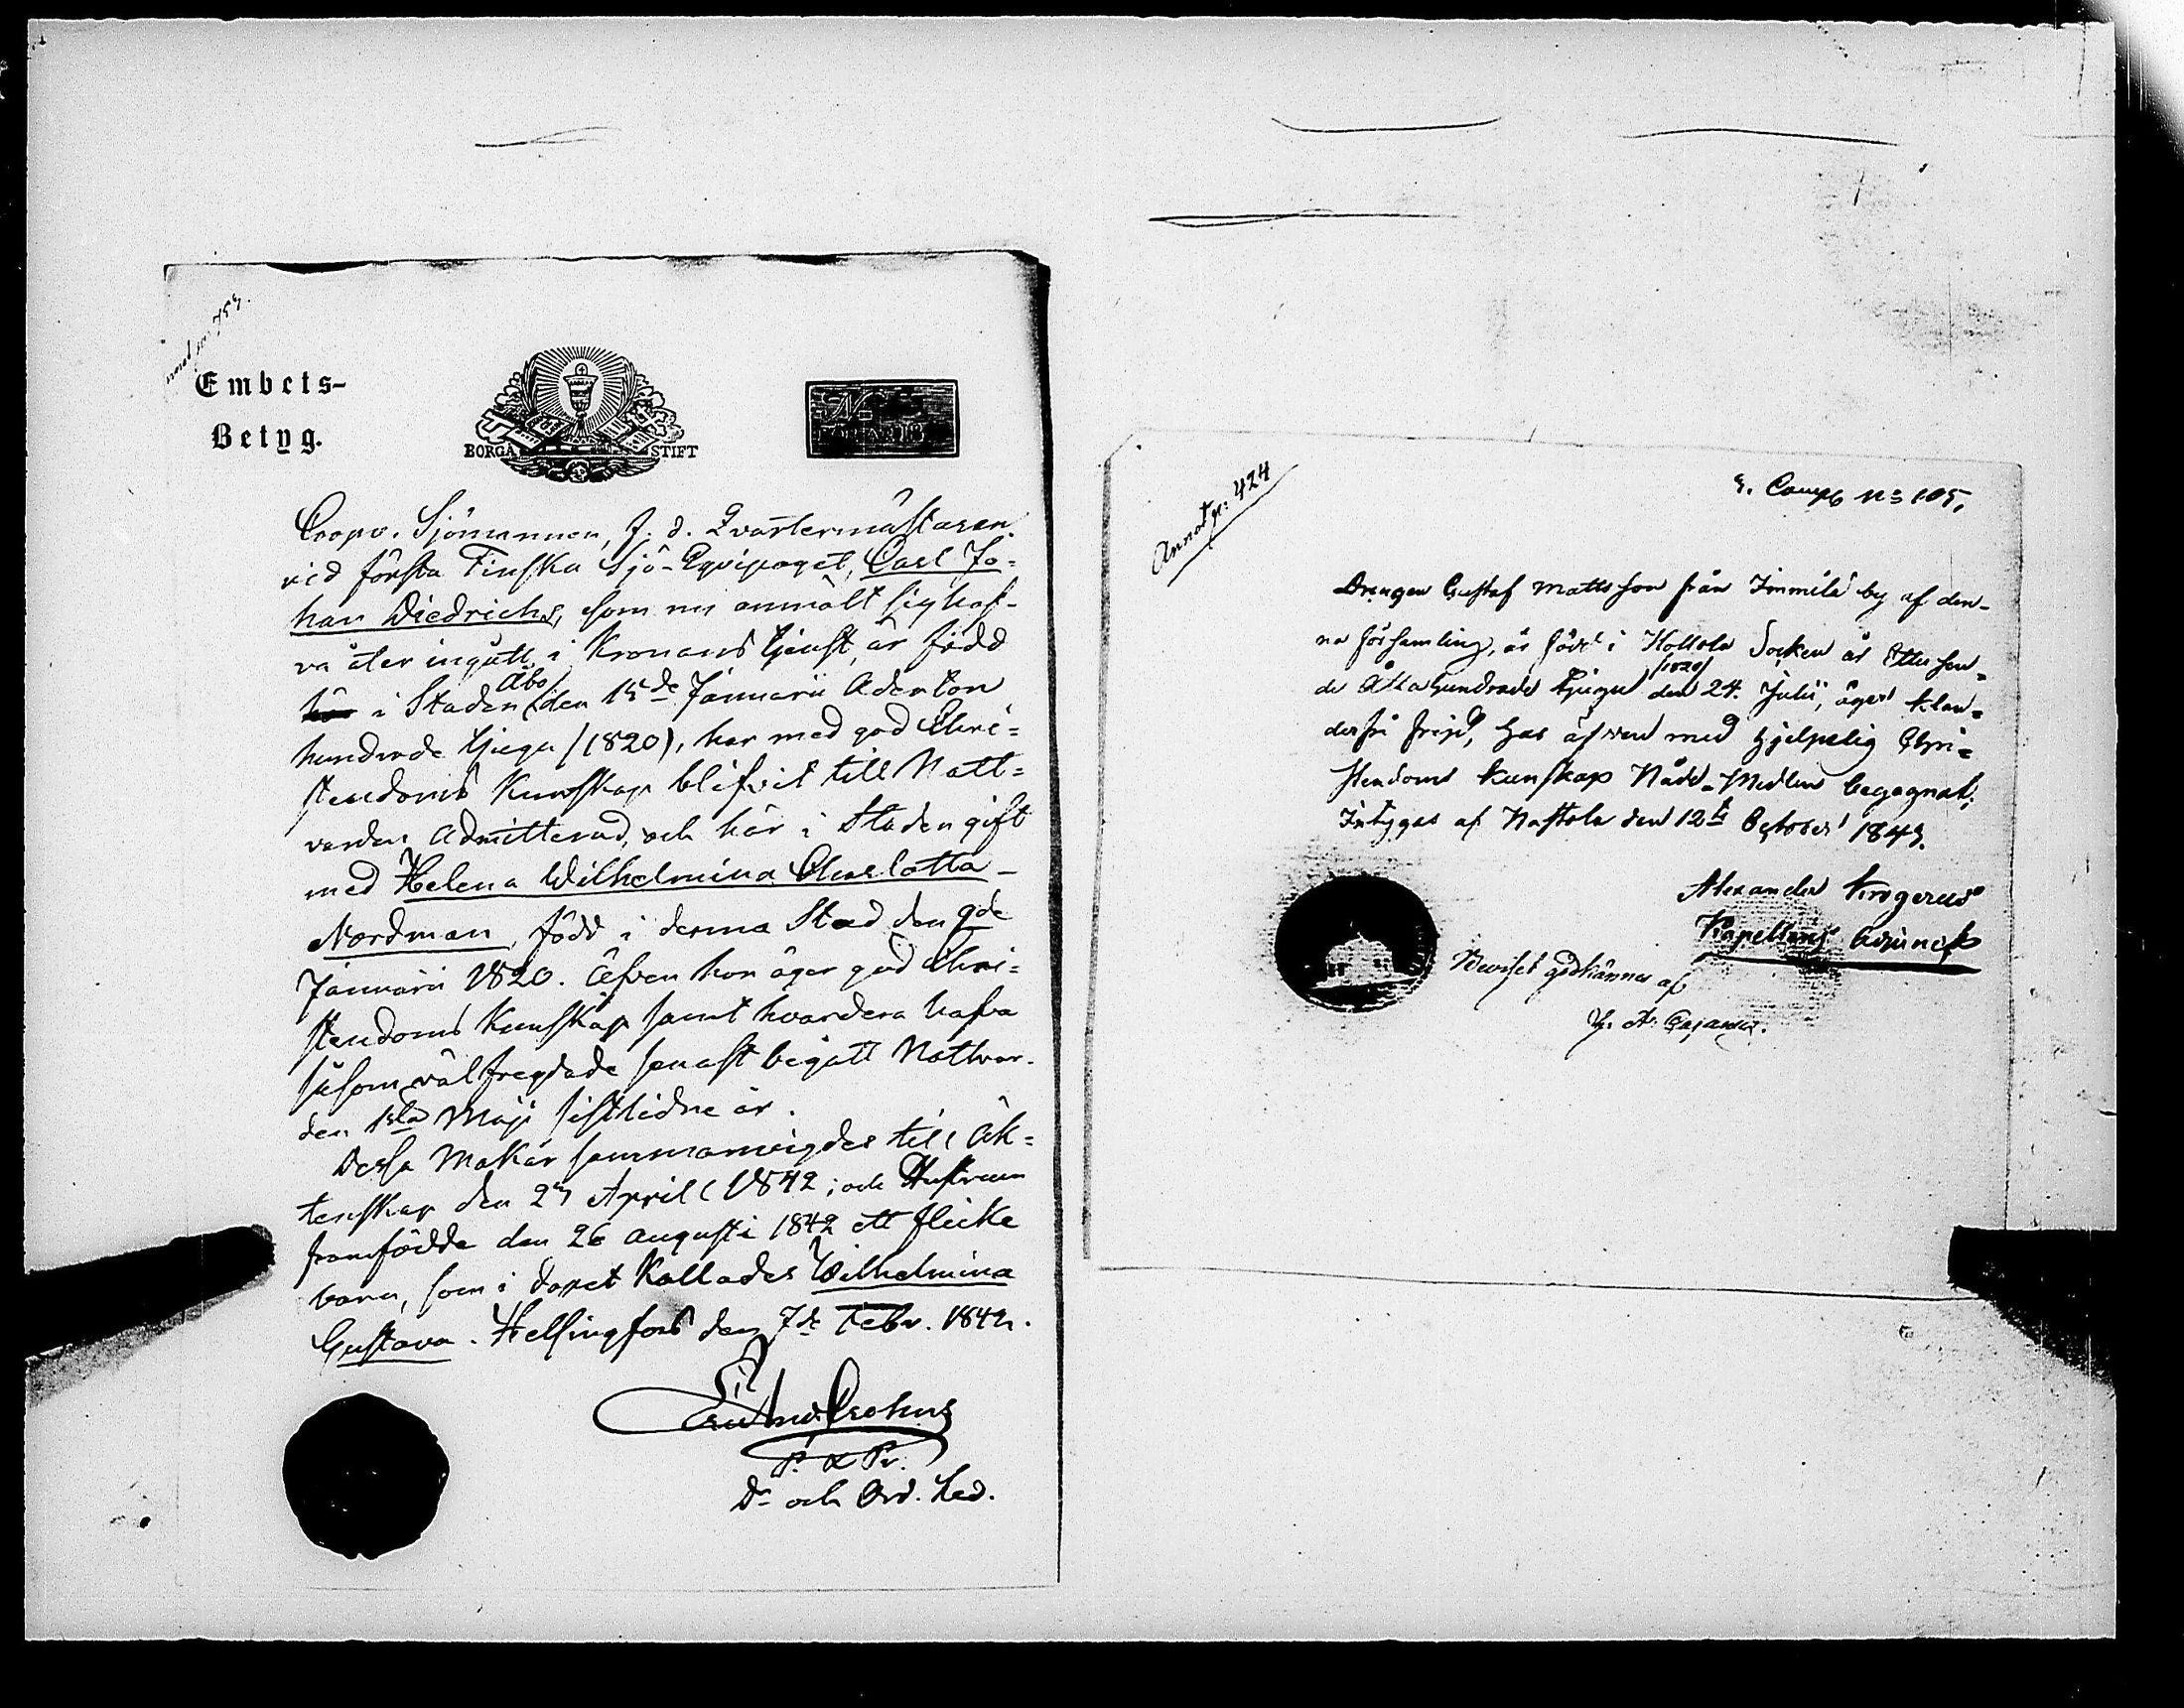 Embets-
Betyg.
BORGÅ STIFT
Coopv. Sjömannen, f. d. Qvartermästaren
vid första Finska Sjö-Eqvipaget, Carl Jo=
han Diedrichs, som nu anmält sig haf-
va åter ingått i Kronans tjenst, är född
här i Staden Åbo den 15de Januarii Aderton
hundrade tjugu (1820), har med god Chri=
stendoms Kunskap blifvit till Natt=
varden Admitterad, och här i Staden gift
med Helena Wilhelmina Charlotta
Nordman, född i denna Stad den 9de
Januarii 1820. Äfven hon äger god Chri=
stendoms Kunskap samt hvardera hafva
såsom välfregdade senast begått Nattvar-
den 1sta Maji sistlidne år.
Dessa Makar sammanvigdes till Äk=
tenskap den 23 April 1842; och Hustrun
framfödde den 26 Augusti 1842 ett flicke
barn, som i dopet Kallades Wilhelmina
Gustava. Helsingfors den 7de Febr. 1843.
Crohns
P. & Pr.
Dr och Ord. Led.
Annot. n: 424
3. Comp. No 105.
Drengen Gustaf Mattsson från Immilä by af den-
na församling, är född i Hollola Socken år Ettusen=
de Åttahundrade tjugu (1820) den 24. Julii, äger klan=
derfri frejd, har äfven med hjelpelig Chri=
stendoms kunskap Nåde-Medlen begagnat;
Intygas af Nastola den 12te October 1843.
Alexander Krogerus
Kapellans Adjunct
Beviset godkännes af
Cajander.